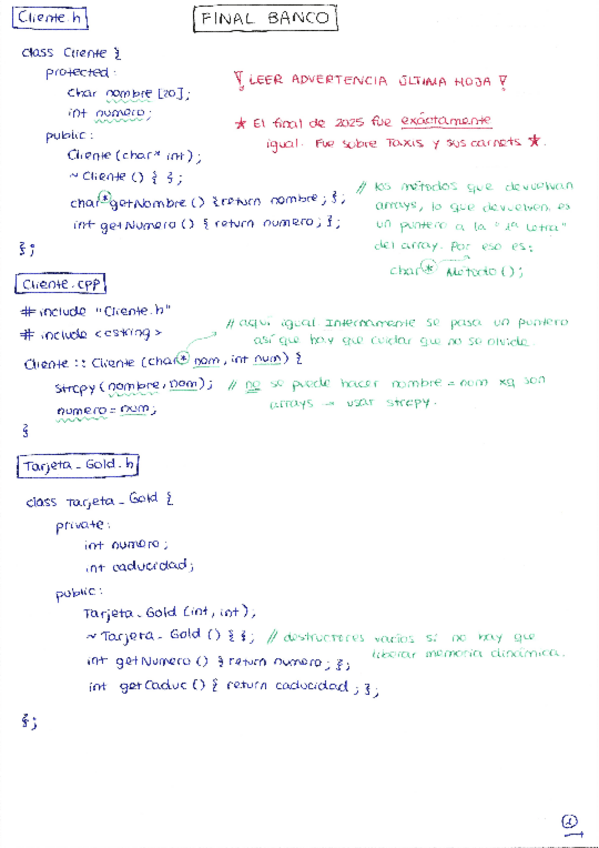 Cliente.h
FINAL BANCO
class Cliente {
protected:
char nombre [20];
int numero;
public:
Cliente (char* int);
~ Cliente () { };
char* getNombre () { return nombre; };
int getNumero () { return numero; };
};
¡ LEER ADVERTENCIA ÚLTIMA HOJA !
★ El final de 2025 fue exáctamente
igual. Fue sobre Taxis y sus carnets ★.
// los métodos que devuelvan
arrays, lo que devuelven es
un puntero a la "1ª letra"
del array. Por eso es:
char* Metodo ();
Cliente.cpp
# include "Cliente.h"
# include <cstring>
// aquí igual Internamente se pasa un puntero
así que hay que cuidar que no se olvide.
Cliente :: Cliente (char* nom, int num) {
strcpy (nombre, nom); // no se puede hacer nombre = num xq son
arrays → usar strcpy.
numero = num;
}
Tarjeta_Gold.h
class Tarjeta_Gold {
private:
int numero;
int caducidad;
public:
Tarjeta_Gold (int, int);
~ Tarjeta_Gold () { }; // destructores varios si no hay que
liberar memoria dinámica.
int getNumero () { return numero; };
int getCaduc () { return caducidad; };
};
1